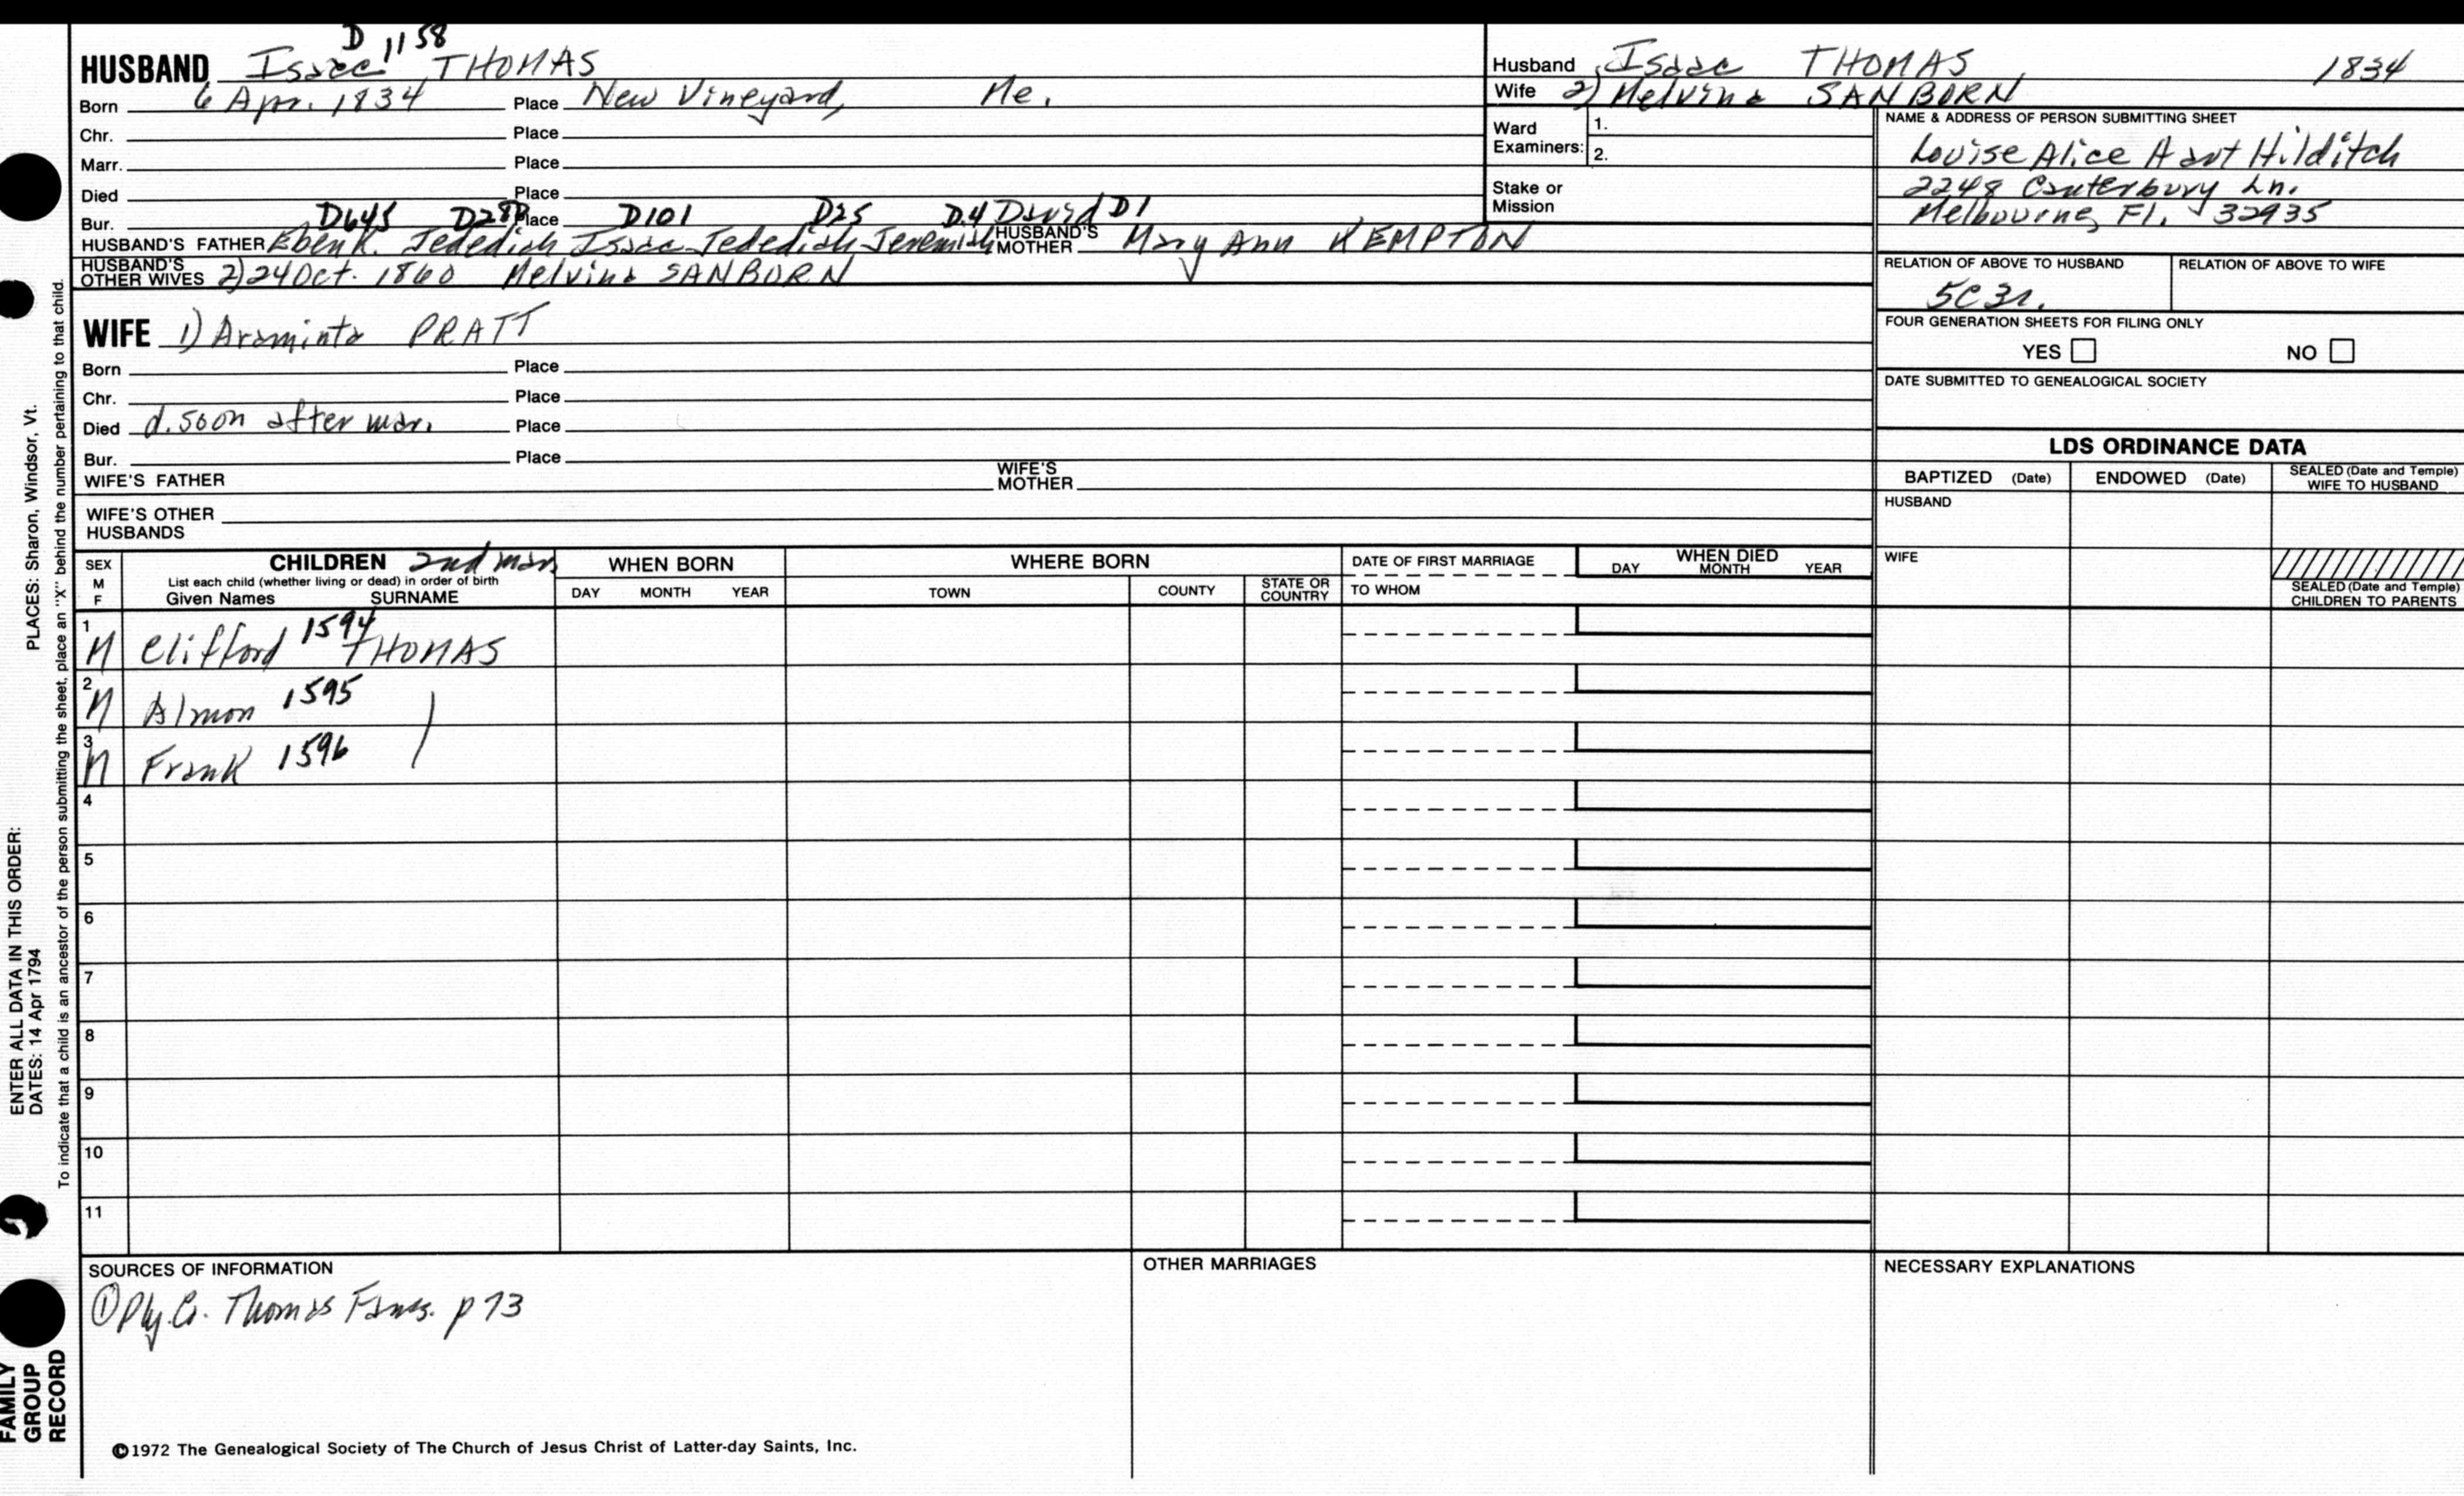 D 1158
HUSBAND Isaac THOMAS
Born 6 Apr. 1834 Place New Vineyard, Me.
Chr. Place
Marr. Place
Died Place
Bur. Place
D645 D280 D101 D25 D.4 David D1
HUSBAND'S FATHER Eben K. Jedediah Isaac Jedediah Jeremiah HUSBAND'S MOTHER Mary Ann KEMPTON
HUSBAND'S OTHER WIVES 2) 24 Oct. 1860 Melvina SANBORN
WIFE 1) Araminta PRATT
Born Place
Chr. Place
Died d. soon after mar. Place
Bur. Place
WIFE'S FATHER WIFE'S MOTHER
WIFE'S OTHER HUSBANDS
Husband Isaac THOMAS 1834
Wife 2) Melvina SANBORN
Ward Examiners: 1.
2.
Stake or Mission
NAME & ADDRESS OF PERSON SUBMITTING SHEET
Louise Alice Hart Hilditch
2248 Canterbury Ln.
Melbourne, Fl. 32935
RELATION OF ABOVE TO HUSBAND RELATION OF ABOVE TO WIFE
5C3r.
FOUR GENERATION SHEETS FOR FILING ONLY
YES NO
DATE SUBMITTED TO GENEALOGICAL SOCIETY
LDS ORDINANCE DATA
BAPTIZED (Date) ENDOWED (Date) SEALED (Date and Temple) WIFE TO HUSBAND
HUSBAND
WIFE
SEALED (Date and Temple) CHILDREN TO PARENTS
SEX M F
CHILDREN 2nd mar
List each child (whether living or dead) in order of birth
Given Names SURNAME
WHEN BORN
DAY MONTH YEAR
WHERE BORN
TOWN COUNTY STATE OR COUNTRY
DATE OF FIRST MARRIAGE
TO WHOM
WHEN DIED
DAY MONTH YEAR
1 M Clifford 1594 THOMAS
2 M Almon 1595
3 M Frank 1596
4
5
6
7
8
9
10
11
SOURCES OF INFORMATION
① Ply. Co. Thomas Fams. p 73
OTHER MARRIAGES
NECESSARY EXPLANATIONS
©1972 The Genealogical Society of The Church of Jesus Christ of Latter-day Saints, Inc.
ENTER ALL DATA IN THIS ORDER:
DATES: 14 Apr 1794 PLACES: Sharon, Windsor, Vt.
To indicate that a child is an ancestor of the person submitting the sheet, place an "X" behind the number pertaining to that child.
FAMILY
GROUP
RECORD